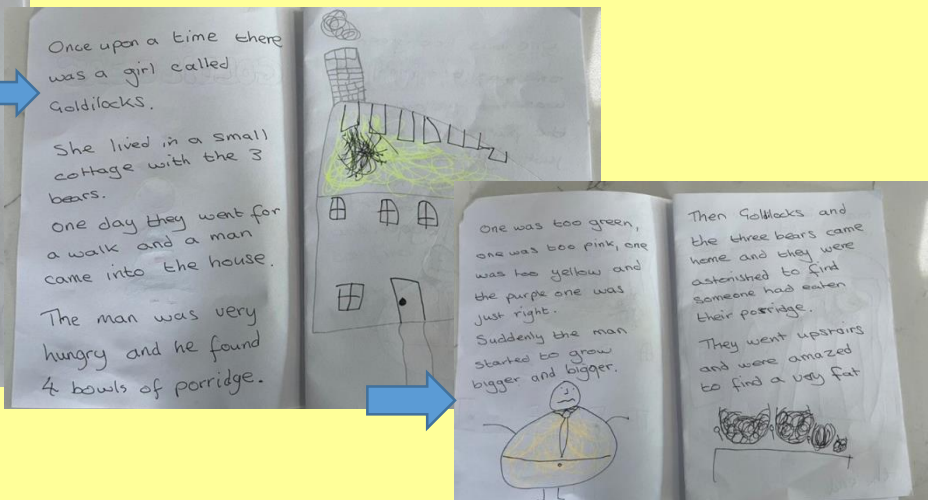 Once upon a time there
was a girl called
Goldilocks.
She lived in a small
cottage with the 3
bears.
One day they went for
a walk and a man
came into the house.
The man was very
hungry and he found
4 bowls of porridge.
One was too green,
one was too pink, one
was too yellow and
the purple one was
just right.
Suddenly the man
started to grow
bigger and bigger.
Then Goldilocks and
the three bears came
home and they were
astonished to find
someone had eaten
their porridge.
They went upstairs
and were amazed
to find a very fat